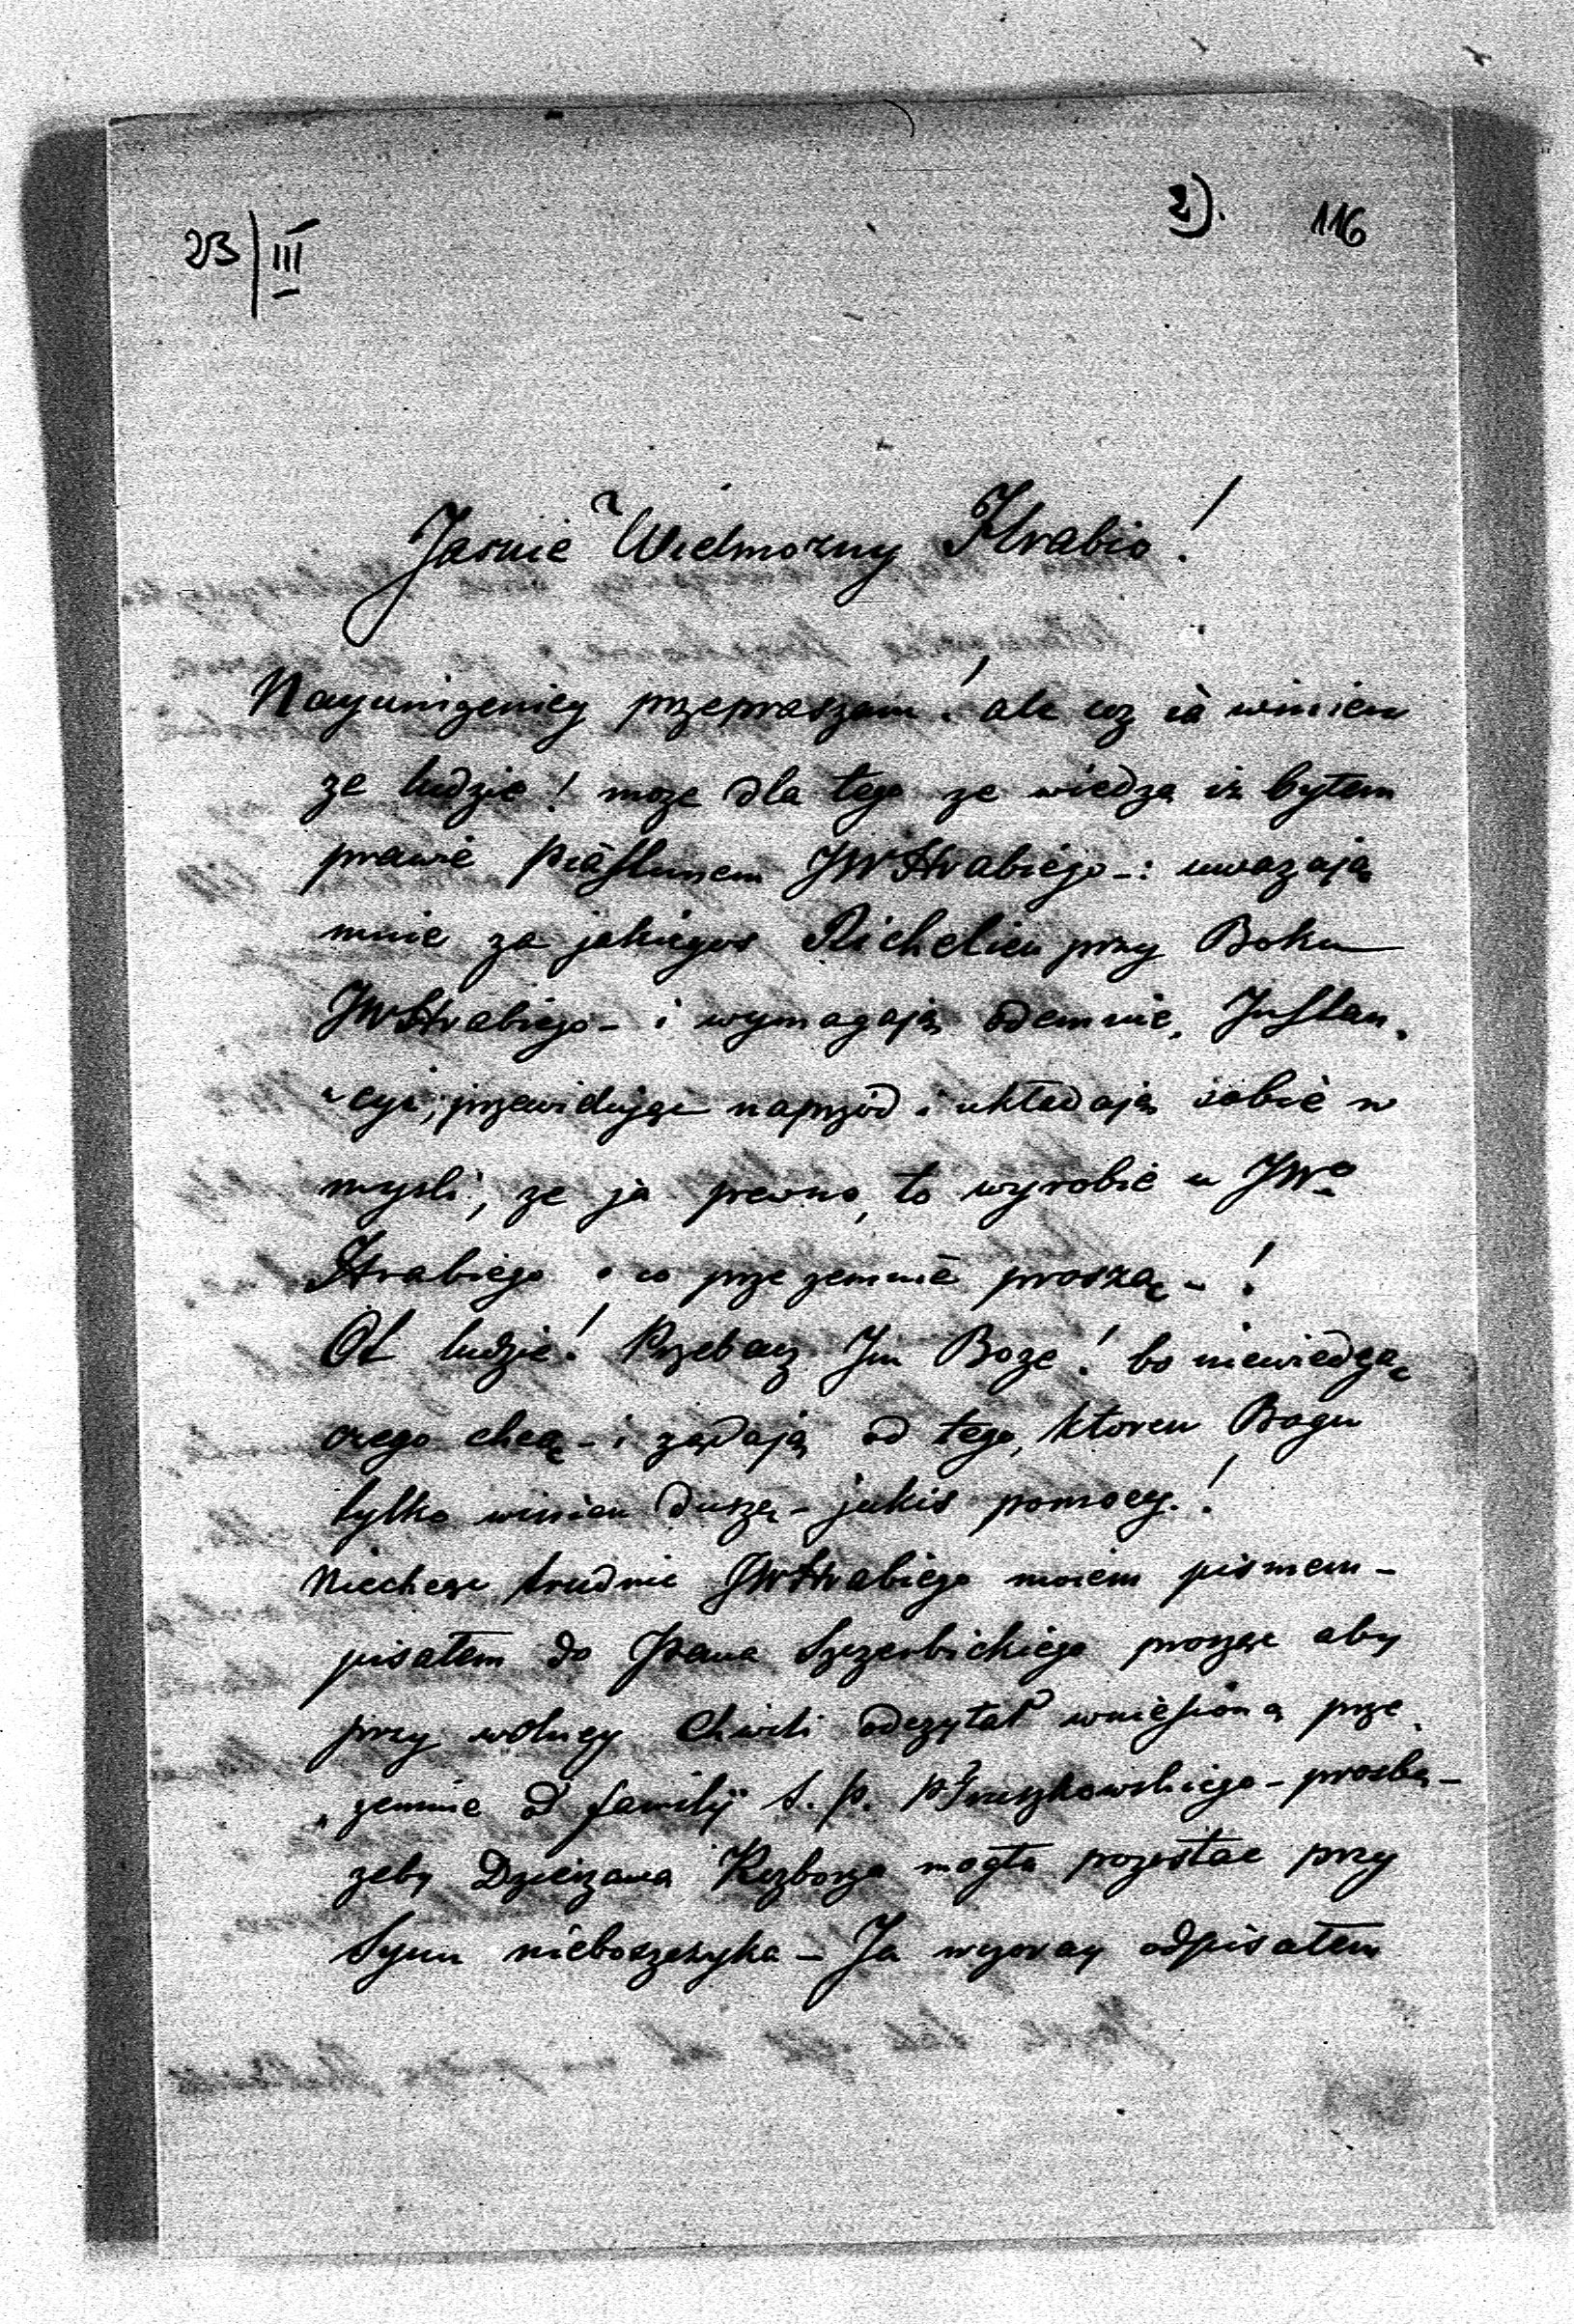 23/III
2). 116
Jasnie Wielmozny Hrabio!
Nayunizeniey przepraszam! ale coz ia winien
ze ludzie! moze dla tego ze wiedzą iz byłem
prawie Piastunem JWHrabiego -: uwazają
mnie za jakiegos Richelieu przy Boku
JWHrabiego - i wymagają odemnie, Instan„
„cyi, przewidując naprzód i układają sobie w
mysli, ze ja pewno, to wyrobie u JWo
Hrabiego o co prze zemnie proszą - !
Ot ludzie! Przebacz Im Boze! bo niewiedzą
czego chcą - i ządają od tego, ktoren Bogu
tylko winien duszą - jakis pomocy!
Niechcąc trudnic JWHrabiego moiem pismem -
pisałem do Pana Szczerbickiego prosząc aby
przy wolney Chwili odczytał wniesioną prze„
„zemnie od familij S. p. Pruszkowskiego - prosbą -
zeby Dzierzawa mogła pozostac przy
Synu nieboszczyka - Ja wczoray odpisałem